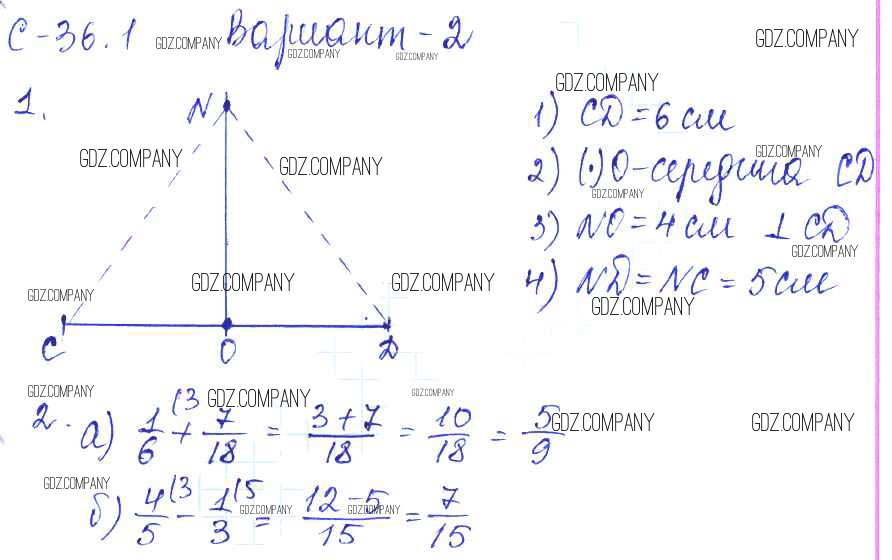 С-36.1 GDZ.COMPANY Вариант-2 GDZ.COMPANY
GDZ.COMPANY GDZ.COMPANY
1.
N
C O D
GDZ.COMPANY GDZ.COMPANY
GDZ.COMPANY GDZ.COMPANY GDZ.COMPANY
GDZ.COMPANY
1) CD = 6 см
2) (·) O-середина CD
GDZ.COMPANY
GDZ.COMPANY
3) NO = 4 см ⊥ CD
GDZ.COMPANY
4) ND = NC = 5 см
GDZ.COMPANY
GDZ.COMPANY GDZ.COMPANY GDZ.COMPANY
2. а) 1/6 (3 + 7/18 = 3+7/18 = 10/18 = 5/9
GDZ.COMPANY GDZ.COMPANY
GDZ.COMPANY
б) 4/5 (3 - 1/3 (5 = 12-5/15 = 7/15
GDZ.COMPANY GDZ.COMPANY